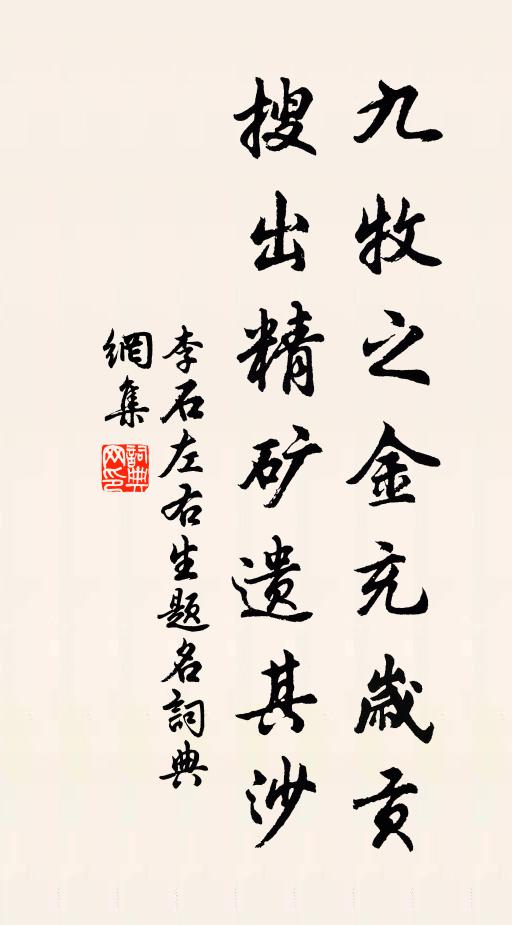 九牧之金充歲貢
搜出精矿遗其沙
李石左右生题名詞典
網集
詞典
网印